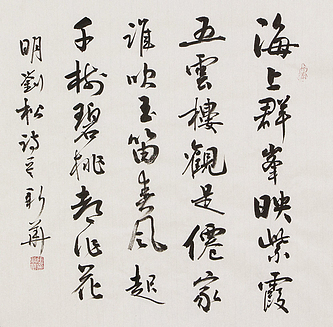 海上群峯映紫霞
五雲樓觀是僊家
誰吹玉笛春風起
千樹碧桃都作花
明劉松詩